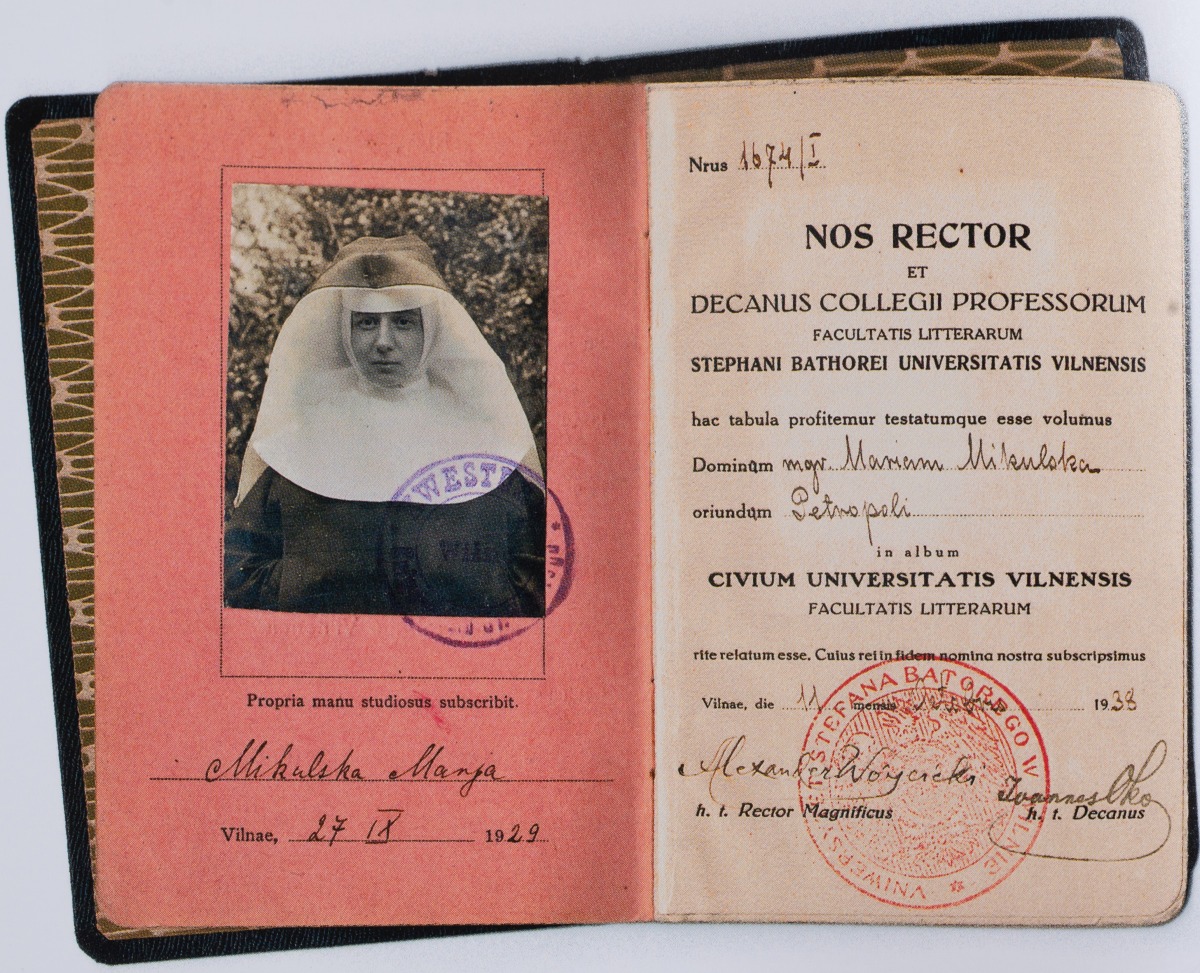 Propria manu studiosus subscribit.
Mikulska Marja
Vilnae, 27 IX 1929
Nrus 1674/I
NOS RECTOR
ET
DECANUS COLLEGII PROFESSORUM
FACULTATIS LITTERARUM
STEPHANI BATHOREI UNIVERSITATIS VILNENSIS
hac tabula profitemur testatumque esse volumus
Dominam mgr. Mariam Mikulska
oriundam Petropoli
in album
CIVIUM UNIVERSITATIS VILNENSIS
FACULTATIS LITTERARUM
rite relatum esse. Cuius rei in fidem nomina nostra subscripsimus
Vilnae, die 11 mensis 1938
Alexander Wóycicki
Ioannes Oko
h. t. Rector Magnificus
h. t. Decanus
UNIWERSYTET STEFANA BATOREGO W WILNIE